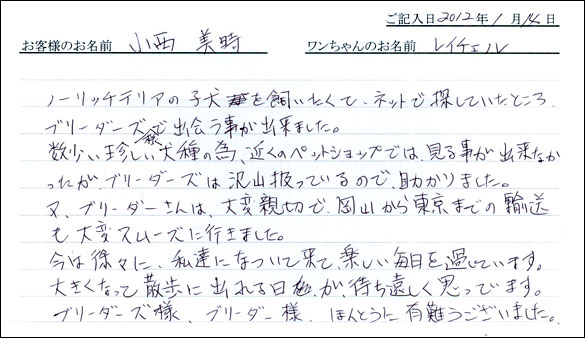 ご記入日 2012年 1月 14日
お客様のお名前 小西 美時 ワンちゃんのお名前 レイチェル
ノーリッチテリアの子犬を飼いたくて、ネットで探していたところ、
ブリーダーズさんで出会う事が出来ました。
数少い珍しい犬種の為、近くのペットショップでは、見る事が出来なか
ったが、ブリーダーズは沢山扱っているので、助かりました。
又、ブリーダーさんは、大変親切で、岡山から東京までの輸送
も大変スムーズに行きました。
今は徐々に、私達になついて来て、楽しい毎日を過しています。
大きくなって散歩に出れる日が、待ち遠しく思ってます。
ブリーダーズ様、ブリーダー様、ほんとうに有難うございました。